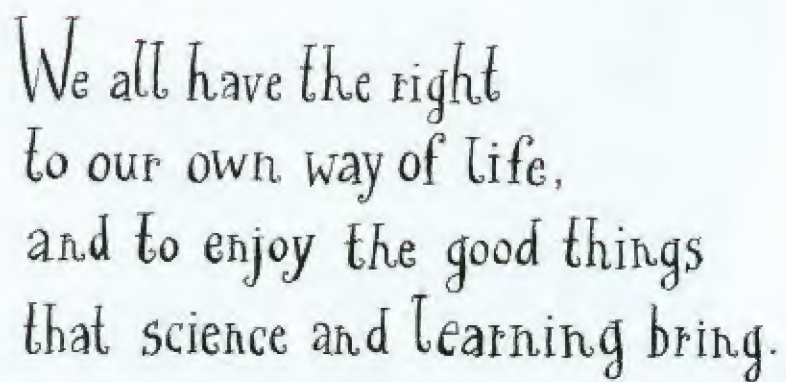 We all have the right
to our own way of life,
and to enjoy the good things
that science and learning bring.